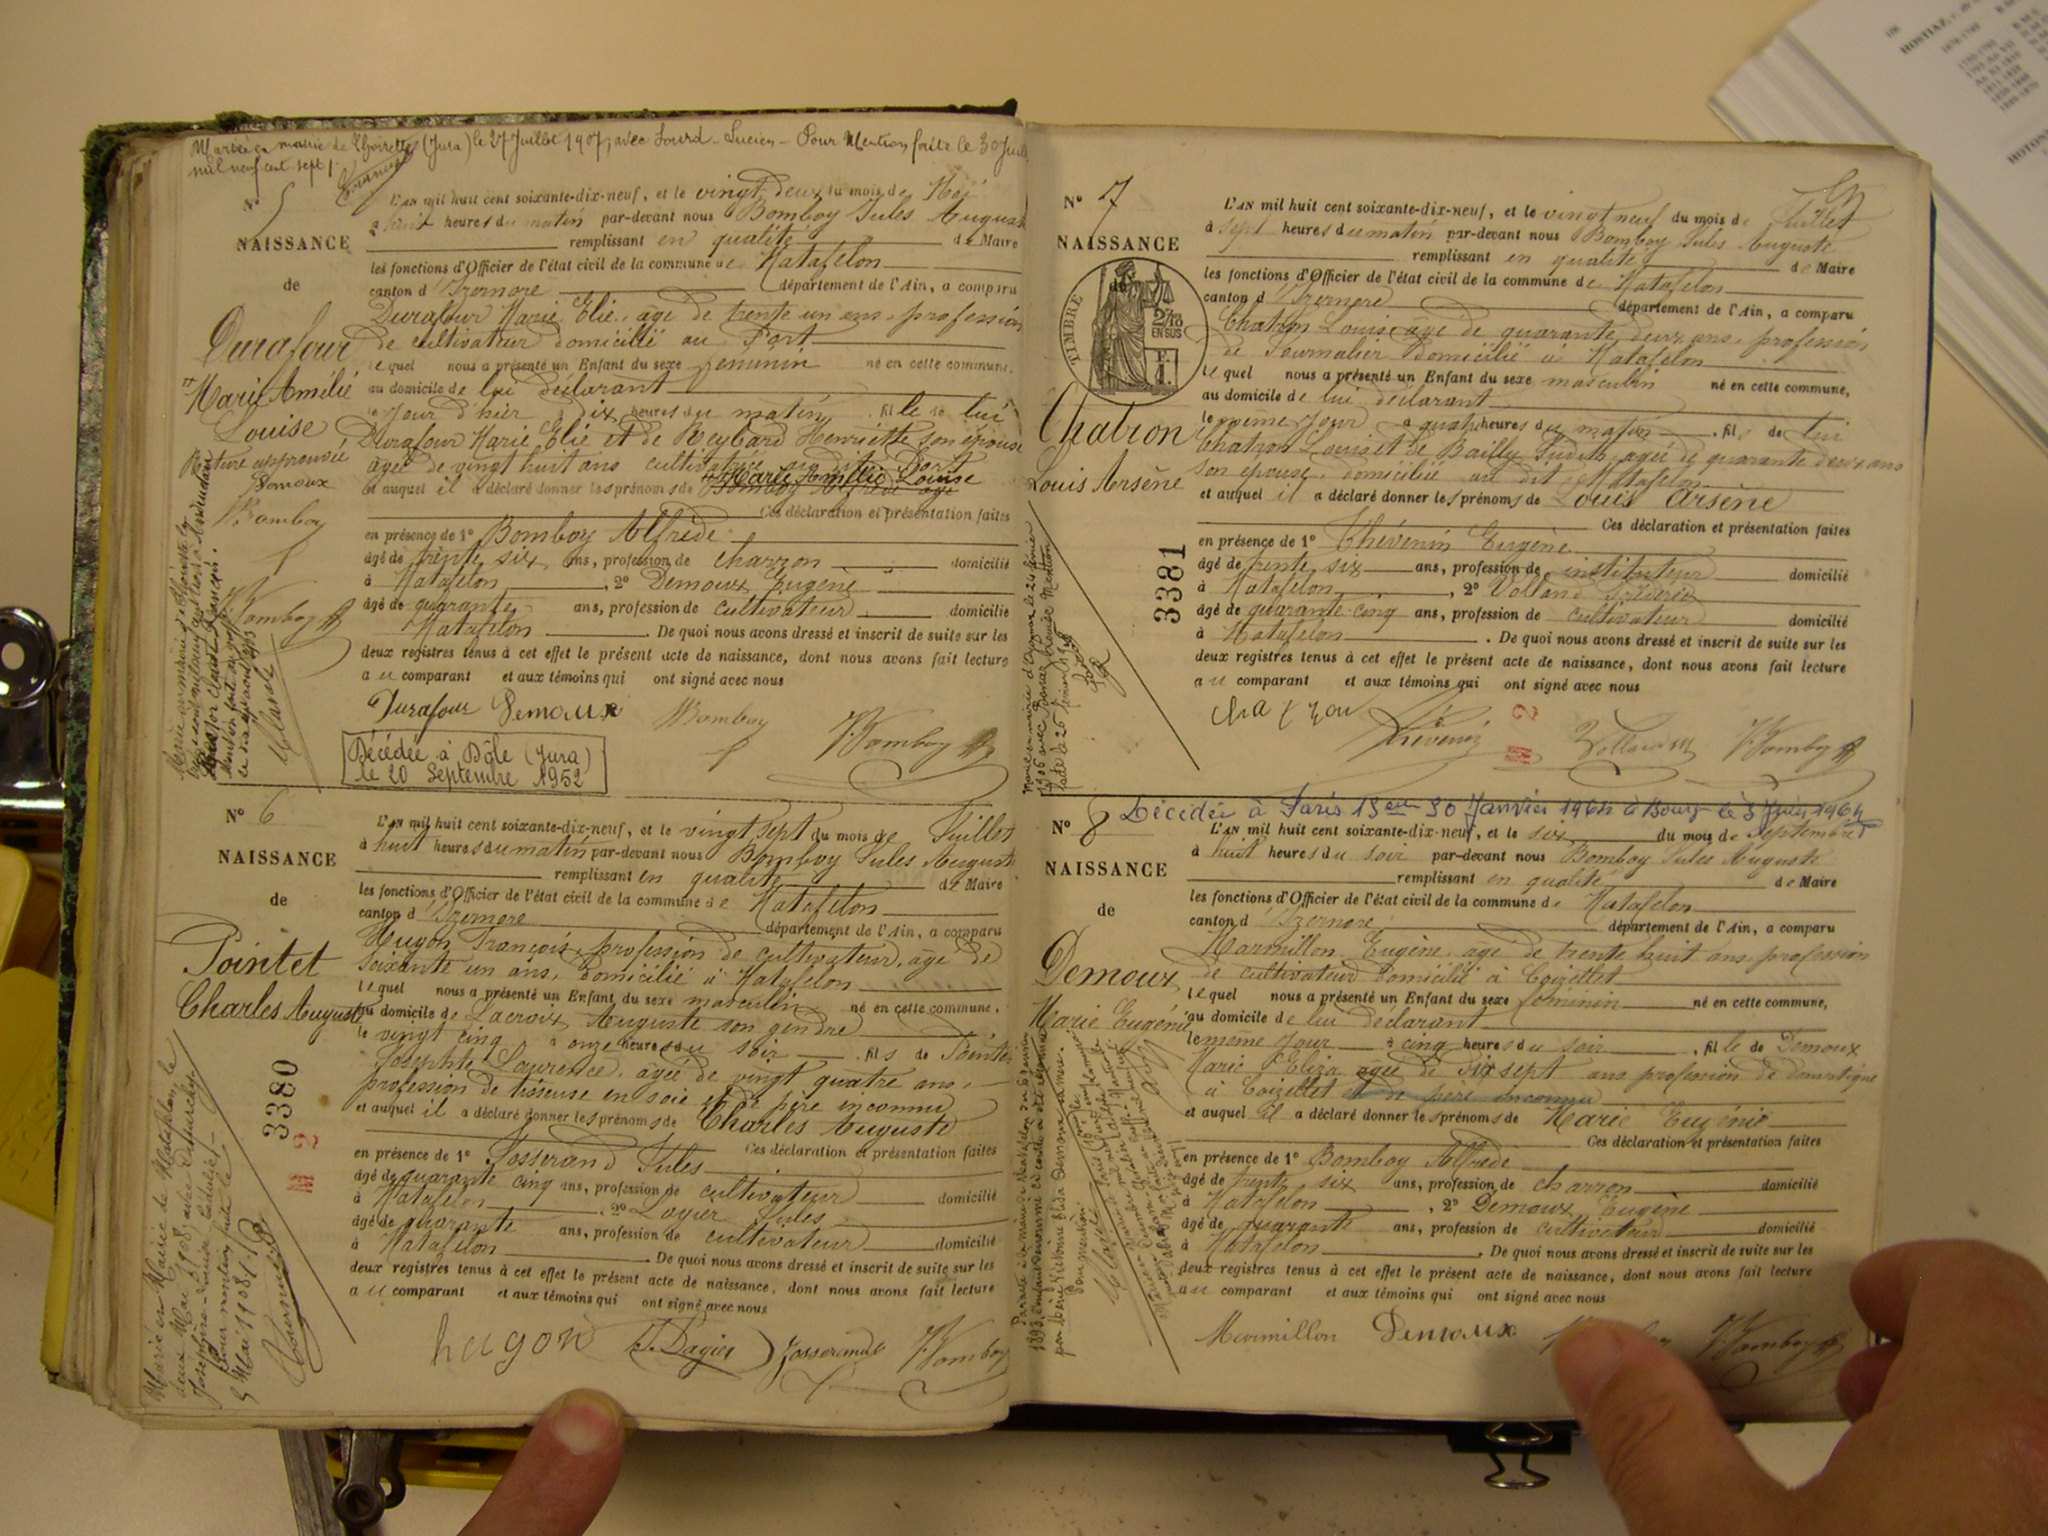 Mariée en mairie de Thoirette (Jura) le 27 Juillet 1907, avec Lourd Lucien - Pour Mention faite le 30 Juil
mil neuf cent sept
N° 5
NAISSANCE
de
Durafour
Marie Amélie
Louise
Rature approuvée
Demoux
Bomboy
L'AN mil huit cent soixante-dix-neuf, et le vingt deux du mois de Mai
à huit heures du matin par-devant nous Bomboy Jules Auguste
remplissant en qualité de Maire
les fonctions d'Officier de l'état civil de la commune de Matafelon
canton d'Izernore département de l'Ain, a comparu
Durafour Marie Elie, âgé de trente un ans, profession
de cultivateur domicilié au Port
lequel nous a présenté un Enfant du sexe féminin né en cette commune,
au domicile de lui déclarant
le jour d'hier à dix heures du matin, fille de lui
Durafour Marie Elie et de Reybard Henriette son épouse
âgée de vingt huit ans cultivatrice au dit Port
et auquel il a déclaré donner les prénoms de Marie Amélie Louise
Bomboy Alfrède âgé
Ces déclaration et présentation faites
en présence de 1° Bomboy Alfrède
âgé de trente six ans, profession de charron domicilié
à Matafelon, 2° Demoux Eugène
âgé de quarante ans, profession de cultivateur domicilié
Matafelon. De quoi nous avons dressé et inscrit de suite sur les
deux registres tenus à cet effet le présent acte de naissance, dont nous avons fait lecture
au comparant et aux témoins qui ont signé avec nous
Durafour Demoux Bomboy J. Bomboy
Décédée à Dôle (Jura)
le 20 Septembre 1952
N° 6
NAISSANCE
de
Pointet
Charles Auguste
3380
Marié en Mairie de Matafelon le
deux Mai 1908, avec
Pour mention faite le
L'AN mil huit cent soixante-dix-neuf, et le vingt sept du mois de Juillet
à huit heures du matin par-devant nous Bomboy Jules Auguste
remplissant en qualité de Maire
les fonctions d'Officier de l'état civil de la commune de Matafelon
canton d'Izernore département de l'Ain, a comparu
Hugon François, profession de cultivateur, âgé de
soixante un ans, domicilié à Matafelon
lequel nous a présenté un Enfant du sexe masculin né en cette commune,
au domicile de Lacroix Auguste son gendre
le vingt cinq à onze heures du soir, fils de Pointet
Josephte Laurence, âgée de vingt quatre ans,
profession de tisseuse en soie et de père inconnu
et auquel il a déclaré donner les prénoms de Charles Auguste
Ces déclaration et présentation faites
en présence de 1° Josserand Jules
âgé de quarante cinq ans, profession de cultivateur domicilié
à Matafelon, 2° Lagier Jules
âgé de quarante ans, profession de cultivateur domicilié
à Matafelon. De quoi nous avons dressé et inscrit de suite sur les
deux registres tenus à cet effet le présent acte de naissance, dont nous avons fait lecture
au comparant et aux témoins qui ont signé avec nous
hugon J. Lagier Josserand J. Bomboy
N° 7
NAISSANCE
de
TIMBRE
2/10
EN SUS
1 F.
Chatron
Louis Arsène
3381
L'AN mil huit cent soixante-dix-neuf, et le vingt neuf du mois de Juillet
à sept heures du matin par-devant nous Bomboy Jules Auguste
remplissant en qualité de Maire
les fonctions d'Officier de l'état civil de la commune de Matafelon
canton d'Izernore département de l'Ain, a comparu
Chatron Louis âgé de quarante deux ans, profession
de Journalier domicilié à Matafelon
lequel nous a présenté un Enfant du sexe masculin né en cette commune,
au domicile de lui déclarant
le même jour à quatre heures du matin, fils de lui
Chatron Louis et de Bailly Judith âgée de quarante deux ans
son épouse, domiciliée au dit Matafelon
et auquel il a déclaré donner les prénoms de Louis Arsène
Ces déclaration et présentation faites
en présence de 1° Thévenin Eugène
âgé de trente six ans, profession de instituteur domicilié
à Matafelon, 2° Volland Fréderic
âgé de quarante cinq ans, profession de cultivateur domicilié
à Matafelon. De quoi nous avons dressé et inscrit de suite sur les
deux registres tenus à cet effet le présent acte de naissance, dont nous avons fait lecture
au comparant et aux témoins qui ont signé avec nous
chatron Thévenin Volland J. Bomboy
Décédée à Paris 13eme 30 Janvier 1964 à Bourg le 3 Juin 1964
N° 8
NAISSANCE
de
Demoux
Marie Eugénie
L'AN mil huit cent soixante-dix-neuf, et le six du mois de Septembre
à huit heures du soir par-devant nous Bomboy Jules Auguste
remplissant en qualité de Maire
les fonctions d'Officier de l'état civil de la commune de Matafelon
canton d'Izernore département de l'Ain, a comparu
Marmillon Eugène, âgé de trente huit ans, profession
de cultivateur domicilié à Coizellet
lequel nous a présenté un Enfant du sexe féminin né en cette commune,
au domicile de lui déclarant
le même jour à cinq heures du soir, fille de Demoux
Marie Eliza âgée de dix sept ans profession de domestique
à Coizellet et de père inconnu
et auquel il a déclaré donner les prénoms de Marie Eugénie
Ces déclaration et présentation faites
en présence de 1° Bomboy Alfrède
âgé de trente six ans, profession de charron domicilié
à Matafelon, 2° Demoux Eugène
âgé de quarante ans, profession de cultivateur domicilié
à Matafelon. De quoi nous avons dressé et inscrit de suite sur les
deux registres tenus à cet effet le présent acte de naissance, dont nous avons fait lecture
au comparant et aux témoins qui ont signé avec nous
Marmillon Demoux J. Bomboy